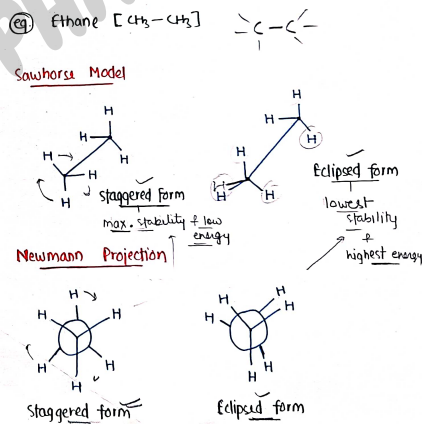 eg. Ethane [CH3-CH3] -C-C-
Sawhorse Model
H H
H H
H H H
H H
H H H
Staggered form
max. stability & low
energy
Eclipsed form
lowest
stability
&
highest energy
Newmann Projection
H H
H H H
H H
H H H
H H
Staggered form
Eclipsed form